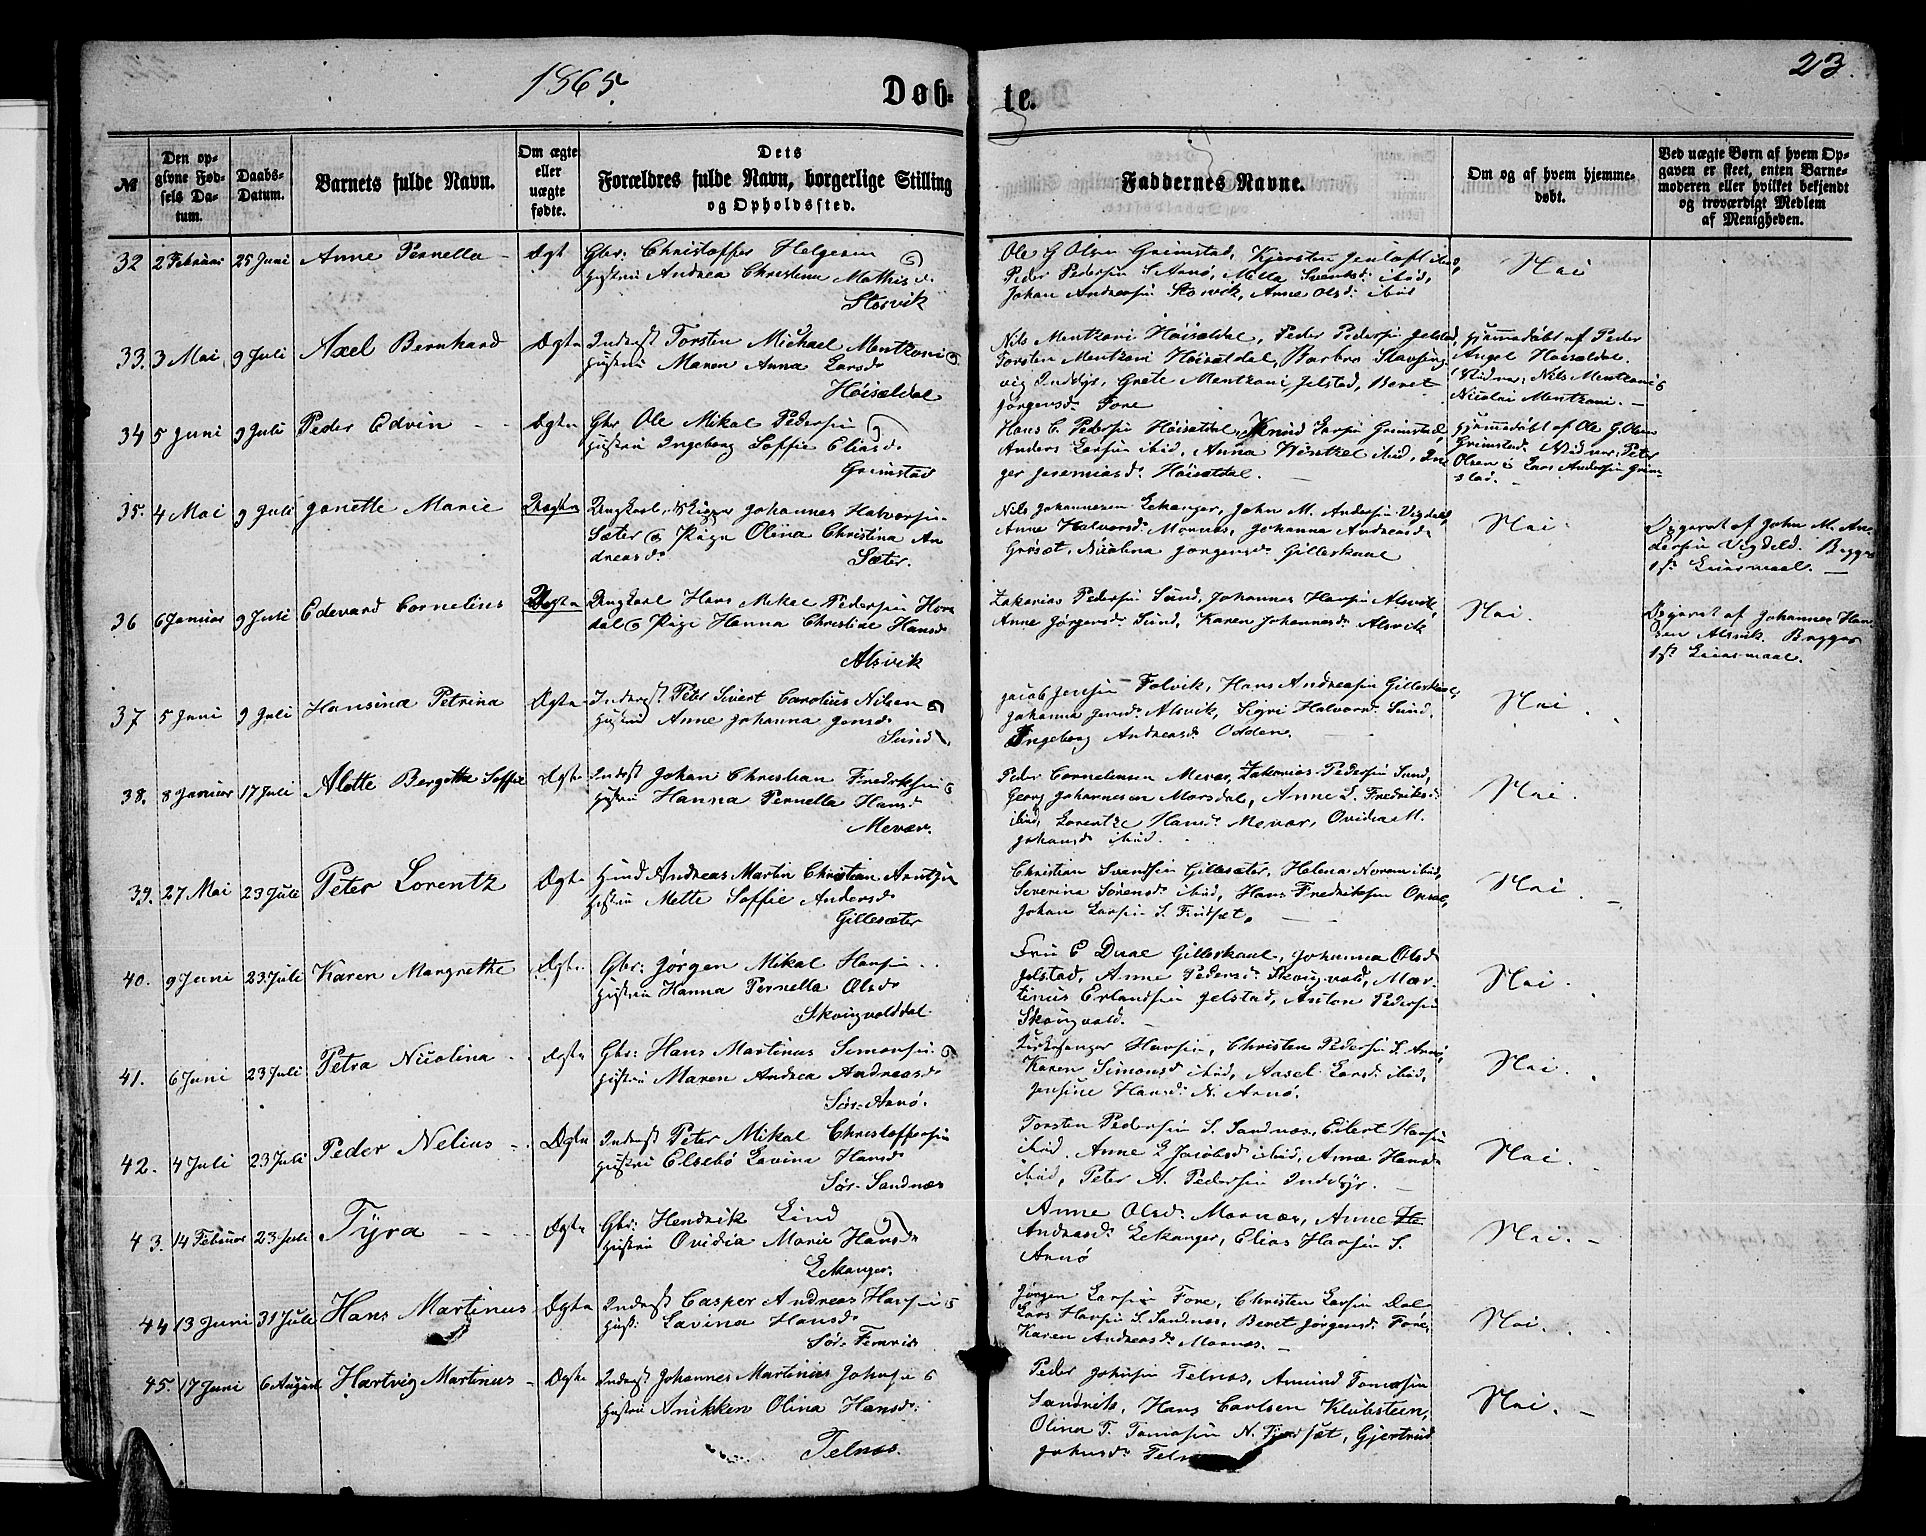 1865.
Døb-
te.
23.
№
Den op-
givne Fød-
sels Da-
tum.
Daabs-
Datum.
Barnets fulde Navn.
Om ægte
eller
uægte
fødte.
Dets
Forældres fulde Navn, borgerlige Stilling
og Opholdssted.
Faddernes Navne.
Om og af hvem hjemme-
døbt.
Ved uægte Børn af hvem Op-
gaven er skeet, enten Barne-
moderen eller hvilket bekjendt
og troværdigt Medlem
af Menigheden.
32 2 Februar 25 Juni Anne Pernella - Ægt
Gbr: Christoffer Helgesen
Hustru Andrea Christina Mathisd.
Storvik
Ole G Olsen Grimstad, Kjersten Jentoft ibid,
Peder Pedersen S. Arnø, Mille Svendsd. ibid,
Johan Andersen Storvik, Anne Olsd. ibid
Nei
33. 3 Mai 9 Juli Axel Bernhard Ægte
Inderst Torsten Michael Mentzoni o
Hustru Maren Anna Larsd.
Høisetdal
Nils Mentzoni Høisetdal, Peder Pedersen Jelstad,
Torsten Mentzoni Høisetdal, Barbro Skausing-
vig Inddyr, Grete Mentzoni Jelstad, Beret
Jørgensd. Fore
Hjemmedøbt af Peder
Angel Høisetdal.
Vidner: Nils Mentzoni o
Nicolai Mentzoni. -
34 5 Juni 9 Juli Peder Edvin - - Ægte
Gbr Ole Mikal Pedersen
Hustru Ingeborg Soffie Eliasd.
Grimstad
Hans C. Pedersen Høisetdal, Knud Larsen Grimstad,
Anders Larsen ibid, Anna Hentzel ibid, In-
ger Jeremiasd. Høisetdal.
Hjemmedøbt af Ole G. Olsen
Grimstad. Vidner: Peter
Olsen o Lars Andersen Grim-
stad. -
35. 4 Mai 9 Juli Janette Marie Uægte
Ungkarl, Johannes Halvorsen
Sæter o Pige Olina Christina An
dreasd. Sæter.
Nils Johannesen Lekanger, John M. Andersen Vigdel,
Anne Halvorsd. Mornes, Johanna Andreasd.
Grøset, Nicolina Jørgensd. Gilleskaal
Nei.
Opgivet af John M. An-
dersen Vigdeld. Begges
1ste Leiermaal. -
36 6 Januar 9 Juli Edevard Cornelius Uægte
Ungkarl Hans Mikal Pedersen Hor
dal o Pige Hanna Christine Hansd.
Alsvik
Zakarias Pedersen Sund, Johannes Hansen Alsvik,
Anne Jørgensd. Sund, Karen Johannesd. Alsvik
Nei.
Opgivet af Johannes Han-
sen Alsvik. Begges
1ste Leiermaal. -
37 5 Juni 9 Juli Hansina Petrina Ægte
Inderst Peter Sivert Carolius Nilsen o
Hustru Anne Johanna Jensd.
Sund
Jacob Jensen Folvik, Hans Andreasen Gilleskaal,
Johanna Jensd. Alsvik, Sigri Halvorsd. Sund,
Ingeborg Andreasd. Odden.
Nei.
38. 8 Januar 17 Juli Alette Bergitte Soffie Ægte
Inderst Johan Christian Fredriksen o
Hustru Hanna Pernella Hansd.
Mevær.
Peder Cornelius Mevær, Zakarias Pedersen Sund,
Georg Johannesen Morsdal, Anne L. Fredriksd
ibid, Lorentze Hansd. Mevær, Ovidia M.
Johansd. ibid.
Nei.
39. 27 Mai 23 Juli Peter Lorentz Ægte
Huusmd Andreas Martin Christian Arntzen
Hustru Mette Soffie Andersd.
Gillesæter
Christian Svendsen Gillesæter, Helena Norum ibid,
Severina Sørensd. ibid, Hans Fredriksen Opsal,
Johan Larsen S. Finset.
Nei.
40. 9 Juni 23. Juli Karen Margrethe Ægte
Gbr: Jørgen Mikal Hansen
Hustru Hanna Pernella Olsd.
Skougvolddal.
Fru C Daae Gilleskaal, Johanna Olsd
Jelstad, Anne Pedersd. Skougvold, Mar-
tinus Erlandsen Jelstad, Anton Pedersen
Skougvold.
Nei.
41. 6 Juni 23 Juli Petra Nicolina Ægte
Gbr: Hans Martinus Simonsen o
Hustru Maren Andrea Andreasd.
Sør-Arnø.
Kirkesanger Hansen, Christen Pedersen S. Arnø,
Karen Simonsd ibid, Aasel Larsd. ibid,
Jensine Hansd. N. Arnø.
Nei.
42. 4 Juli 23 Juli Peder Nelius Ægte
Inderst Peter Mikal Christoffersen
Hustru Elsebø Lavina Hansd.
Sør-Sandnæs
Torsten Pedersen S. Sandnæs, Eilert Hansen
ibid. Anne L Jacobsd ibid, Anne Hansd.
ibid, Peter A. Pedersen Inddyr.
Nei.
43. 14 Februar 23 Juli Tyra - - - Ægte
Gbr: Hendrik Lind
Hustru Ovidia Marie Hansd.
Lekanger.
Anne Olsd. Mornæs, Anne
Andreasd. Lekanger, Elias Hansen S.
Arnø
Nei.
44 13 Juni 31 Juli Hans Martinus Ægte
Inderst Casper Andreas Hansen o
Hust: Lavina Hansd.
Jørgen Larsen Fore, Christen Larsen Dal
Lars Hansen S. Sandnes, Beret Jørgensd. Fore,
Karen Andreasd. Mornes. -
Nei.
45. 17 Juni 6 August Hartvig Martinus Ægte
Inderst Johannes Martinius Johnsen o
Hustru Anikken Olina Hansd.
Telnes.
Peder Johnsen Telnes, Amund Tomasen
Sandvik, Hans Carlsen Klubsteen,
Olina F. Tomasen N. Finset, Gjertrud
Johnsd. Telnes
Nei.